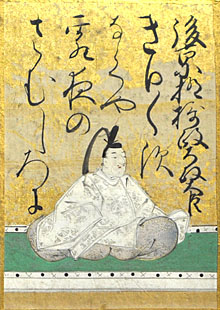 後京極摂政太政大臣
きり〱す
なくや
霜夜の
さむしろに